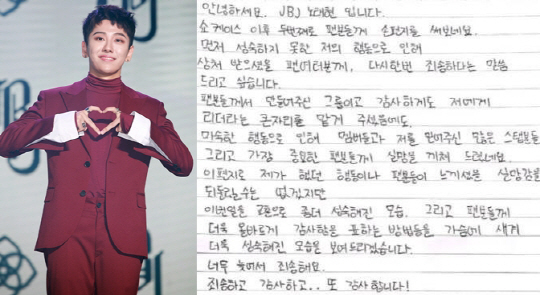 안녕하세요. JBJ 노태현 입니다.
쇼케이스 이후 두번째로 팬분들께 손편지를 써보네요.
먼저 성숙하지 못한 저의 행동으로 인해
상처 받으셨을 팬여러분께, 다시한번 죄송하다는 말씀
드리고 싶습니다.
팬분들께서 만들어주신 그룹이고 감사하게도 저에게
리더라는 큰자리를 맡겨 주셨음에도,
미숙한 행동으로 인해 멤버들과 저를 믿어주신 많은 스텝분들
그리고 가장 중요한 팬분들께 실망을 끼쳐 드렸네요.
이편지로 제가 했던 행동이나 팬분들이 느끼셨을 실망감을
되돌릴수는 없겠지만
이번일을 교훈으로 좀더 성숙해진 모습, 그리고 팬분들께
더욱 올바르게 감사함을 표하는 방법들을 가슴에 새겨
더욱 성숙해진 모습을 보여드리겠습니다.
너무 늦어서 죄송해요.
죄송하고 감사하고.. 또 감사합니다!